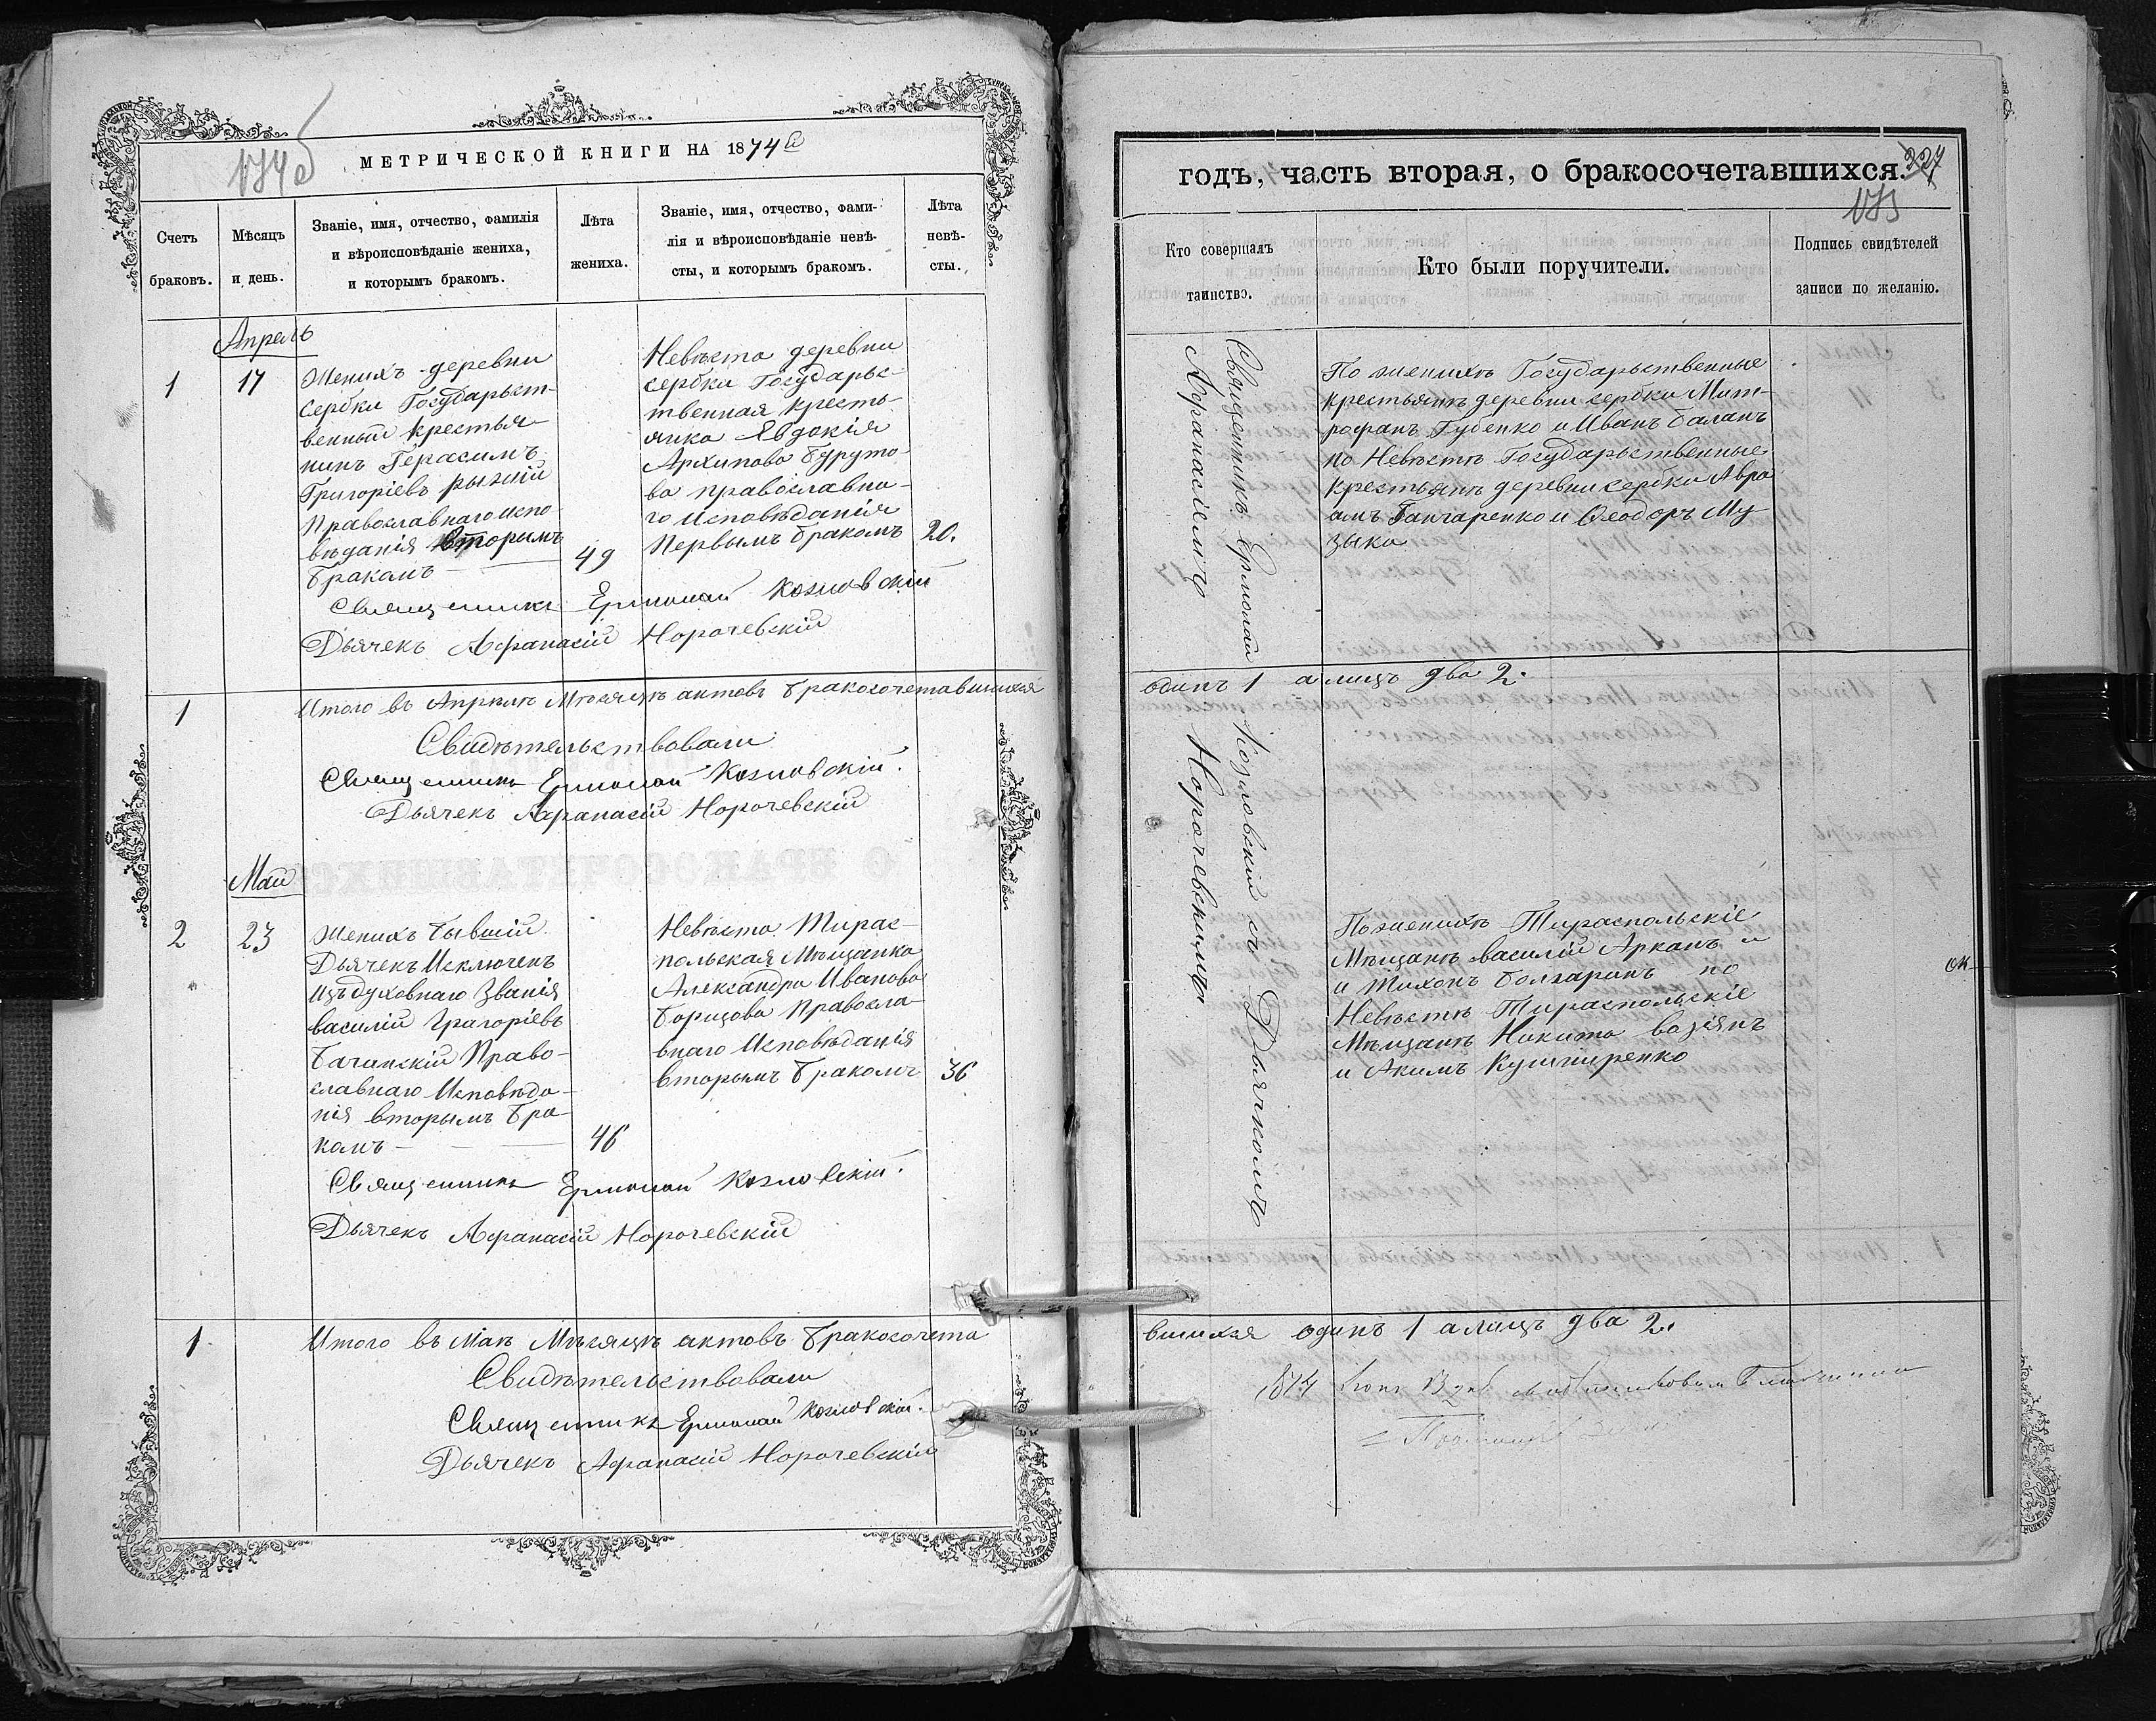 174 б
МЕТРИЧЕСКОЙ КНИГИ НА 1874й
Счетъ
браковъ.
Мѣсяцъ
и день.
Званіе, имя, отчество, фамилія
и вѣроисповѣданіе жениха,
и которымъ бракомъ.
Лѣта
жениха.
Званіе, имя, отчество, фами-
лія и вѣроисповѣданіе невѣ-
сты, и которымъ бракомъ.
Лѣта
невѣ-
сты.
Апрель
1
17
Женихъ деревни
Сербки Государьст-
венный крестья
нинъ Герасимъ
Григоріевъ рыжій
Православнаго испо
вѣданія вторымъ
бракомъ
49
Невѣста деревни
сербки Государьс-
твенная кресть
янка Явдокія
Архипова Бурутo-
ва православна-
го исповѣданія
Первымъ бракомъ
20.
Священникъ Ермолай Козловскій
Дьячекъ Афанасій Норочевскій
1
Итого въ Апрѣлѣ Мѣсяцѣ актовъ бракосочетавшихся
Свидѣтельствовали
Священникъ Ермолай Козловскій.
Дьячекъ Афанасій Норочевскій
Май
2
23
Женихъ бывшій
Дьячекъ Исключенъ
Изъ духовнаго Званія
василій Григоріевъ
Бачинскій Право-
славнаго Исповѣда-
нія вторымъ бра-
комъ
46
Невѣста Тирас-
польская Мѣщанка
Александра Иванова
Борицова Правосла
внаго Исповѣданія
вторымъ бракомъ
36
Священникъ Ермолай Козловскій.
Дьячекъ Афанасій Норочевскій
1
Итого въ Маѣ Мѣсяцѣ актовъ бракосочета
Свидѣтельствовали
Священникъ Ермолай Козловскій.
Дьячекъ Афанасій Норочевскій
годъ, часть вторая, о бракосочетавшихся.
227
175
Кто совершалъ
таинство.
Кто были поручители.
Подпись свидѣтелей
записи по желанію.
Священникъ Ермолай Козловскій съ Дьячкомъ
Афанасіемъ Норочевскимъ
По женихѣ Государьственные
крестьянѣ деревни сербки Мит-
рофанъ Губенко и Иванъ Баланъ
по Невѣстѣ Государьственные
крестьянѣ деревни сербки Авра
амъ Ганчаренко и Ѳеодоръ Му
зыка
одинъ 1 а лицъ два 2.
По женихѣ Тираспольскіе
Мѣщанѣ василій Арканъ и
и Тихонъ Болгаринъ по
Невѣстѣ Тираспольскіе
Мѣщанѣ Никита возіянъ
и Акимъ Кушниренко
вшихся одинъ 1 а лицъ два 2.
1874